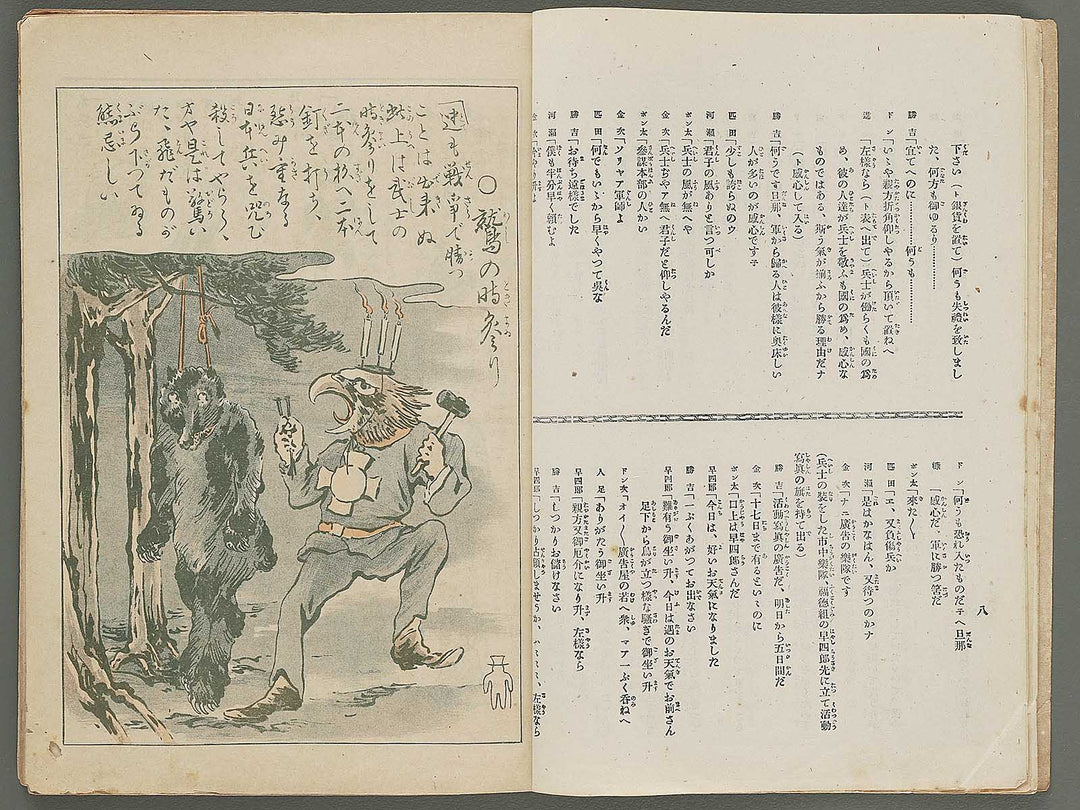 下さい(ト銀貨を置て)何うも失禮を致しまし
た、何方も御ゆるり…………
勝吉「宜てへのに…………何うも…………
ドン「いゝや親方折角仰しやるから頂いて置ねへ
「左樣なら(ト表へ出て)兵士が働らくも國の爲
め、彼の人達が兵士を敬ふも國の爲め、感心な
ものではある、斯う氣が揃ふから勝る理由だナ
(ト感心して入る)
勝吉「何うです旦那、軍から歸る人は彼樣に奥床しい
人が多いのが感心です子
匹田「少しも誇らぬのウ
河瀬「君子の風ありと言つ可しか
ポン太「兵士の風が無へや
金次「兵士ぢやア無へ君子だと仰しやるんだ
ポン太「參謀本部の人かい
金次「ソリヤア軍師よ
匹田「何でもいゝから早くやつて呉な
勝吉「お待ち遠樣でした
河瀬「僕も半分早く頼むよ
八
ドン「何うも恐れ入たものだ子へ旦那
「感心だ、軍に勝つ筈だ
ポン太「來た〱
匹田「エ、又負傷兵か
河瀬「是はかなはん、又待つのかナ
金次「ナニ廣告の樂隊です
(兵士の裝をした市中樂隊、福德組の早四郎先に立て活動
寫眞の旗を持て出る)
勝吉「活動寫眞の廣告だ、明日から五日間だ
金次「十七日まで有るといゝのに
ポン太「口上は早四郎さんだ
早四郎「今日は、好いお天氣になりました
勝吉「一ぷくあがつてお出なさい
早四郎「難有う御坐い升、今日は遇のお天氣でお前さん
足下から鳥が立つ樣な騒ぎで御坐い升
ドン次「オイ〱廣告屋の若へ衆、マア一ぷく呑ねへ
人足「ありがたう御坐い升
早四郎「親方又御厄介になり升、左樣なら
勝吉「しつかりお儲けなさい
○鷲の時參り
迚も戰爭で勝つ
ことは出來ぬ
此上は武士の
時參りをして
二本の杉へ二本
釘を打ち、
怨み重なる
日本兵を咒ひ
殺してやらう、
オヤ是は驚い
た、飛だものが
ぶら下つてゐる
熊忌しい